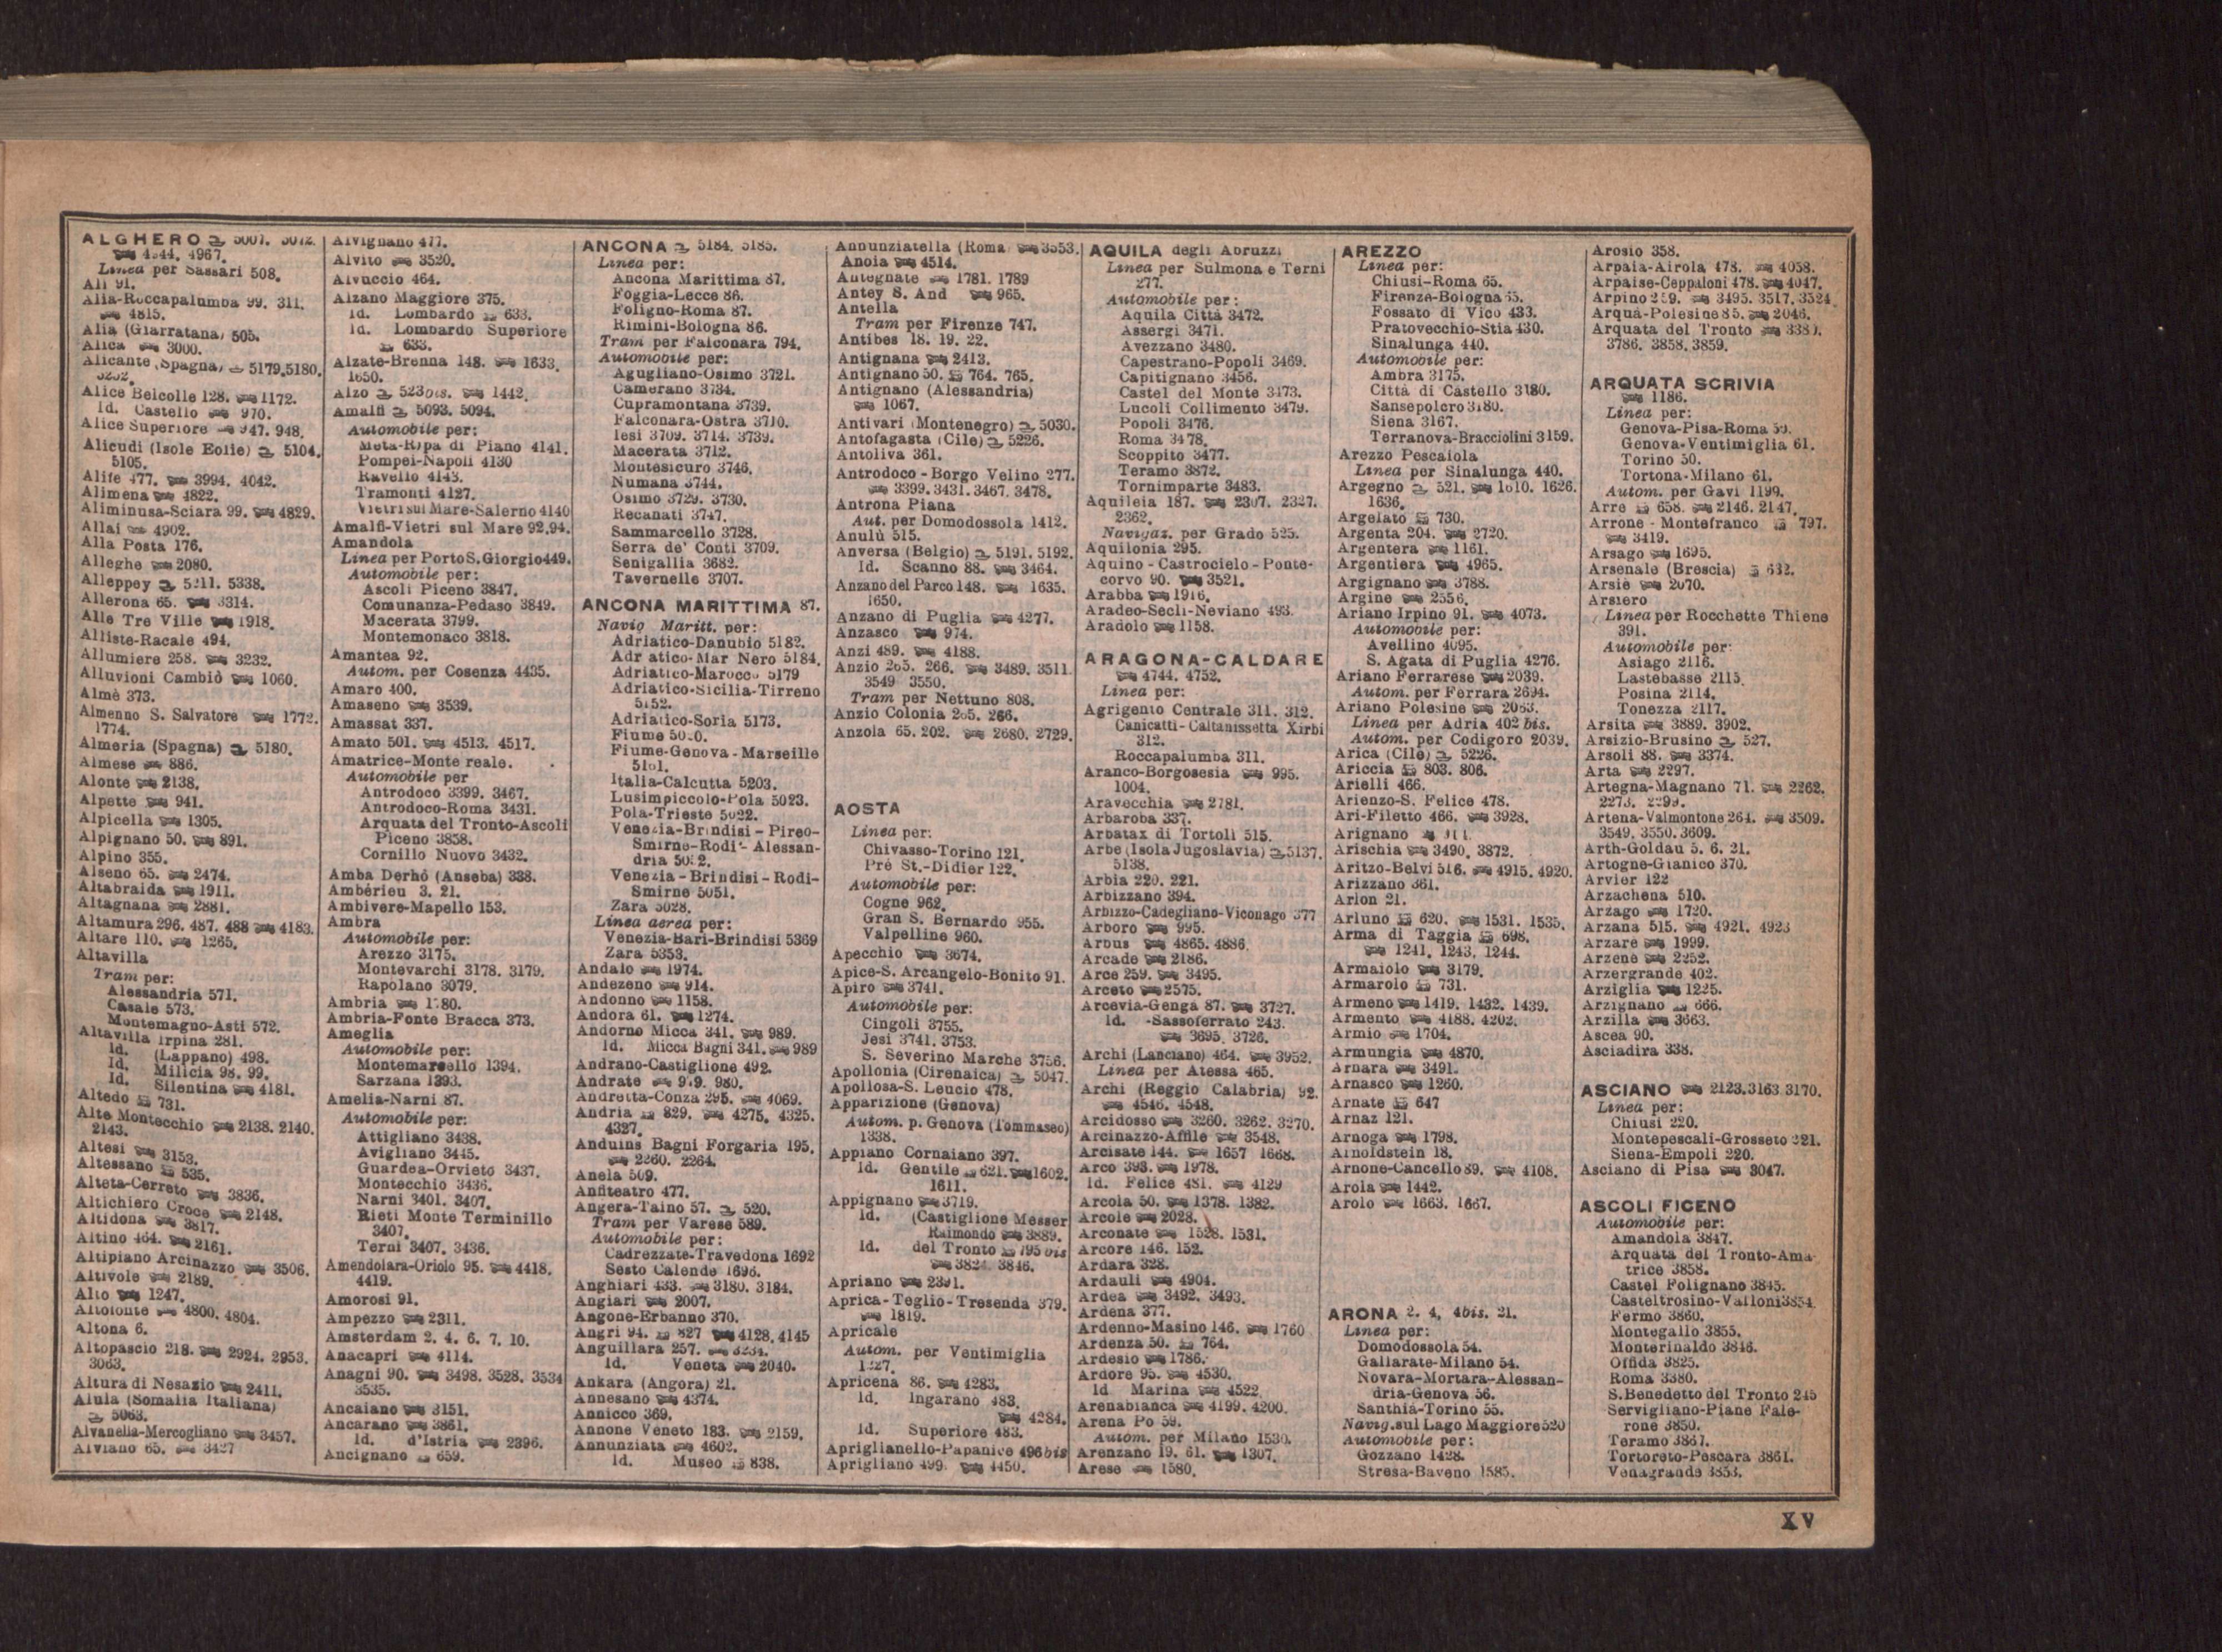 ALGHERO 5007. 5072.
4544. 4967.
Linea per Sassari 508.
Alì 91.
Alia-Roccapalumba 99. 311.
4815.
Alia (Giarratana) 505.
Alica 3000.
Alicante (Spagna) 5179, 5180.
Alice Belcolle 128. 1172.
Id. Castello 970.
Alice Superiore 947. 948.
Alicudi (Isole Eolie) 5104.
5105.
Alife 477. 3994. 4042.
Alimena 4822.
Aliminusa-Sciara 99. 4829.
Allai 4902.
Alla Posta 176.
Alleghe 2080.
Alleppey 5211. 5338.
Allerona 65. 3314.
Alle Tre Ville 1918.
Alliste-Racale 494.
Allumiere 258. 3232.
Alluvioni Cambiò 1060.
Almè 373.
Almenno S. Salvatore 1772.
1774.
Almeria (Spagna) 5180.
Almese 886.
Alonte 2138.
Alpette 941.
Alpicella 1305.
Alpignano 50. 891.
Alpino 355.
Alseno 65. 2474.
Altabraida 1911.
Altagnana 2881.
Altamura 296. 487. 488 4183.
Altare 110. 1265.
Altavilla
Tram per:
Alessandria 571.
Casale 573.
Montemagno-Asti 572.
Altavilla Irpina 281.
Id. (Lappano) 498.
Id. Milicia 98. 99.
Id. Silentina 4181.
Altedo 731.
Alte Montecchio 2138. 2140.
2143.
Altesi 3153.
Altessano 535.
Alteta-Cerreto 3836.
Altichiero Croce 2148.
Altidona 3817.
Altino 464. 2161.
Altipiano Arcinazzo 3506.
Altivole 2189.
Alto 1247.
Altofonte 4800. 4804.
Altona 6.
Altopascio 218. 2924. 2953.
3063.
Altura di Nesazio 2411.
Alula (Somalia Italiana)
5063.
Alvanella-Mercogliano 3457.
Alviano 65. 3427
Alvignano 477.
Alvito 3520.
Alvuccio 464.
Alzano Maggiore 375.
Id. Lombardo 633.
Id. Lombardo Superiore
633.
Alzate-Brenna 148. 1633.
1650.
Alzo 523bis. 1442.
Amalfi 5093. 5094.
Automobile per:
Meta-Ripa di Piano 4141.
Pompei-Napoli 4130
Ravello 4143.
Tramonti 4127.
Vietri sul Mare-Salerno 4140
Amalfi-Vietri sul Mare 92.94.
Amandola
Linea per Porto S. Giorgio 449.
Automobile per:
Ascoli Piceno 3847.
Comunanza-Pedaso 3849.
Macerata 3799.
Montemonaco 3818.
Amantea 92.
Autom. per Cosenza 4435.
Amaro 400.
Amaseno 3539.
Amassat 337.
Amato 501. 4513. 4517.
Amatrice-Monte reale.
Automobile per
Antrodoco 3399. 3467.
Antrodoco-Roma 3431.
Arquata del Tronto-Ascoli
Piceno 3858.
Cornillo Nuovo 3432.
Amba Derhò (Anseba) 338.
Ambérieu 3. 21.
Ambivere-Mapello 153.
Ambra
Automobile per:
Arezzo 3175.
Montevarchi 3178. 3179.
Rapolano 3079.
Ambria 1780.
Ambria-Fonte Bracca 373.
Ameglia
Automobile per:
Montemarcello 1394.
Sarzana 1393.
Amelia-Narni 87.
Automobile per:
Attigliano 3438.
Avigliano 3445.
Guardea-Orvieto 3437.
Montecchio 3436.
Narni 3401. 3407.
Rieti Monte Terminillo
3407.
Terni 3407. 3436.
Amendolara-Oriolo 95. 4418.
4419.
Amorosi 91.
Ampezzo 2311.
Amsterdam 2. 4. 6. 7. 10.
Anacapri 4114.
Anagni 90. 3498. 3528. 3534
3535.
Ancaiano 3151.
Ancarano 3861.
Id. d'Istria 2396.
Ancignano 659.
ANCONA 5184. 5185.
Linea per:
Ancona Marittima 87.
Foggia-Lecce 86.
Foligno-Roma 87.
Rimini-Bologna 86.
Tram per Falconara 794.
Automobile per:
Agugliano-Osimo 3721.
Camerano 3734.
Cupramontana 3739.
Falconara-Ostra 3710.
Iesi 3709. 3714. 3739.
Macerata 3712.
Montesicuro 3746.
Numana 3744.
Osimo 3729. 3730.
Recanati 3747.
Sammarcello 3728.
Serra de' Conti 3709.
Senigallia 3682.
Tavernelle 3707.
ANCONA MARITTIMA 87.
Navig Maritt. per:
Adriatico-Danubio 5182.
Adriatico-Mar Nero 5184.
Adriatico-Marocco 5179
Adriatico-Sicilia-Tirreno
5152.
Adriatico-Soria 5173.
Fiume
Fiume-Genova-Marseille
5101.
Italia-Calcutta 5203.
Lusimpiccolo-Pola 5023.
Pola-Trieste 5022.
Venezia-Brindisi-Pireo-
Smirne-Rodi-Alessan-
dria
Venezia-Brindisi-Rodi-
Smirne 5051.
Zara 5028.
Linea aerea per:
Venezia-Bari-Brindisi 5369
Zara 5353.
Andalo 1974.
Andezeno 914.
Andonno 1158.
Andora 61. 1274.
Andorno Micca 341. 989.
Id. Micca Bagni 341. 989
Andrano-Castiglione 492.
Andrate 979. 980.
Andretta-Conza 295. 4069.
Andria 829. 4275. 4325.
4327.
Anduins Bagni Forgaria 195.
2260. 2264.
Anela 509.
Anfiteatro 477.
Angera-Taino 57. 520.
Tram per Varese 589.
Automobile per:
Cadrezzate-Travedona 1692
Sesto Calende 1696.
Anghiari 433. 3180. 3184.
Angiari 2007.
Angone-Erbanno 370.
Angri 94. 827 4128. 4145
Anguillara 257. 3234.
Id. Veneta 2040.
Ankara (Angora) 21.
Annesano 4374.
Annicco 369.
Annone Veneto 183. 2159.
Annunziata 4602.
Id. Museo 838.
Annunziatella (Roma 3553.
Anoia 4514.
Antegnate 1781. 1789
Antey S. And 965.
Antella
Tram per Firenze 747.
Antibes 18. 19. 22.
Antignana 2413.
Antignano 50. 764. 765.
Antignano (Alessandria)
1067.
Antivari (Montenegro) 5030.
Antofagasta (Cile) 5226.
Antoliva 361.
Antrodoco-Borgo Velino 277.
3399. 3431. 3467. 3478.
Antrona Piana
Aut. per Domodossola 1412.
Anulù 515.
Anversa (Belgio) 5191. 5192.
Id. Scanno 88. 3464.
Anzano del Parco 148. 1635.
1650.
Anzano di Puglia 4277.
Anzasco 974.
Anzi 489. 4188.
Anzio 265. 266. 3489. 3511.
3549 3550.
Tram per Nettuno 808.
Anzio Colonia 265. 266.
Anzola 65. 202. 2680. 2729.
AOSTA
Linea per:
Chivasso-Torino 121.
Pré St.-Didier 122.
Automobile per:
Cogne 962.
Gran S. Bernardo 955.
Valpelline 960.
Apecchio 3674.
Apice-S. Arcangelo-Bonito 91.
Apiro 3741.
Automobile per:
Cingoli 3755.
Jesi 3741. 3753.
S. Severino Marche 3756.
Apollonia (Cirenaica) 5047.
Apollosa-S. Leucio 478.
Apparizione (Genova)
Autom. p. Genova (Tommaseo)
1338.
Appiano Cornaiano 397.
Id. Gentile 621. 1602.
1611.
Appignano 3719.
Id. (Castiglione Messer
Raimondo 3889.
Id. del Tronto 795bis
3824. 3846.
Apriano 2391.
Aprica-Teglio-Tresenda 379.
1819.
Apricale
Autom. per Ventimiglia
1227.
Apricena 86. 4283.
Id. Ingarano 483.
4284.
Id. Superiore 483.
Aprigianello-Papanice 496bis
Aprigliano 499. 4450.
AQUILA degli Abruzzi
Linea per Sulmona e Terni
277.
Automobile per:
Aquila Città 3472.
Assergi 3471.
Avezzano 3480.
Capestrano-Popoli 3469.
Capitignano 3456.
Castel del Monte 3473.
Lucoli Collimento 3479.
Popoli 3476.
Roma 3478.
Scoppito 3477.
Teramo 3872.
Tornimparte 3483.
Aquileia 187. 2307. 2327.
2362.
Navigaz. per Grado 525.
Aquilonia 295.
Aquino-Castrocielo-Ponte-
corvo 90. 3521.
Arabba 1916.
Aradeo-Seclì-Neviano 493.
Aradolo 1158.
ARAGONA-CALDARE
4744. 4752.
Linea per:
Agrigento Centrale 311. 312.
Canicattì-Caltanissetta Xirbi
312.
Roccapalumba 311.
Aranco-Borgosesia 995.
1004.
Aravecchia 2781.
Arbaroba 337.
Arbatax di Tortolì 515.
Arbe (Isola Jugoslavia) 5137.
5138.
Arbia 220. 221.
Arbizzano 394.
Arbizzo-Cadegliano-Viconago 377
Arboro 995.
Arbus 4865. 4886.
Arcade 2186.
Arce 259. 3495.
Arceto 2575.
Arcevia-Genga 87. 3727.
Id. -Sassoferrato 243.
3695. 3726.
Archi (Lanciano) 464. 3952.
Linea per Atessa 465.
Archi (Reggio Calabria) 92.
4546. 4548.
Arcidosso 3260. 3262. 3270.
Arcinazzo-Affile 3548.
Arcisate 144. 1657 1668.
Arco 393. 1978.
Id. Felice 481. 4129
Arcola 50. 1378. 1382.
Arcole 2028.
Arconate 1528. 1531.
Arcore 146. 152.
Ardara 328.
Ardauli 4904.
Ardea 3492. 3493.
Ardena 377.
Ardenno-Masino 146. 1760
Ardenza 50. 764.
Ardesio 1786.
Ardore 95. 4530.
Id Marina 4522.
Arenabianca 4199. 4200.
Arena Po 59.
Autom. per Milano 1530.
Arenzano 19. 61. 1307.
Arese 1580.
AREZZO
Linea per:
Chiusi-Roma 65.
Firenze-Bologna 65.
Fossato di Vico 433.
Pratovecchio-Stia 430.
Sinalunga 440.
Automobile per:
Ambra 3175.
Città di Castello 3180.
Sansepolcro 3180.
Siena 3167.
Terranova-Bracciolini 3159.
Arezzo Pescaiola
Linea per Sinalunga 440.
Argegno 521. 1610. 1626.
1636.
Argelato 730.
Argenta 204. 2720.
Argentera 1161.
Argentiera 4965.
Argignano 3788.
Argine 2556.
Ariano Irpino 91. 4073.
Automobile per:
Avellino 4095.
S. Agata di Puglia 4276.
Ariano Ferrarese 2039.
Autom. per Ferrara 2694.
Ariano Polesine 2063.
Linea per Adria 402 bis.
Autom. per Codigoro 2039.
Arica (Cile) 5226.
Ariccia 803. 806.
Arielli 466.
Arienzo-S. Felice 478.
Ari-Filetto 466. 3928.
Arignano 911.
Arischia 3490. 3872.
Aritzo-Belvì 516. 4915. 4920.
Arizzano 361.
Arlon 21.
Arluno 620. 1531. 1535.
Arma di Taggia 698.
1241. 1243. 1244.
Armaiolo 3179.
Armarolo 731.
Armeno 1419. 1432. 1439.
Armento 4188. 4202.
Armio 1704.
Armungia 4870.
Arnara 3491.
Arnasco 1260.
Arnate 647
Arnaz 121.
Arnoga 1798.
Arnoldstein 18.
Arnone-Cancello 89. 4108.
Arola 1442.
Arolo 1663. 1667.
ARONA 2. 4, 4bis. 21.
Linea per:
Domodossola 54.
Gallarate-Milano 54.
Novara-Mortara-Alessan-
dria-Genova 56.
Santhià-Torino 55.
Navig. sul Lago Maggiore 520
Automobile per:
Gozzano 1428.
Stresa-Baveno 1585.
Arosio 358.
Arpaia-Airola 478. 4058.
Arpaise-Ceppaloni 478. 4047.
Arpino 259. 3495. 3517. 3524
Arquà-Polesine 85. 2046.
Arquata del Tronto 3380.
3786. 3858. 3859.
ARQUATA SCRIVIA
1186.
Linea per:
Genova-Pisa-Roma 50.
Genova-Ventimiglia 61.
Torino 50.
Tortona-Milano 61.
Autom. per Gavi 1199.
Arre 658. 2146. 2147.
Arrone-Montefranco 797.
3419.
Arsago 1695.
Arsenale (Brescia) 632.
Arsiè 2070.
Arsiero
Linea per Rocchette Thiene
391.
Automobile per:
Asiago 2116.
Lastebasse 2115.
Posina 2114.
Tonezza 2117.
Arsita 3889. 3902.
Arsizio-Brusino 527.
Arsoli 88. 3374.
Arta 2297.
Artegna-Magnano 71. 2262.
2273. 2299.
Artena-Valmontone 264. 3509.
3549. 3550. 3609.
Arth-Goldau 5. 6. 21.
Artogne-Gianico 370.
Arvier 122
Arzachena 510.
Arzago 1720.
Arzana 515. 4921. 4923
Arzare 1999.
Arzene 2252.
Arzergrande 402.
Arziglia 1225.
Arzignano 666.
Arzilla 3663.
Ascea 90.
Asciadira 338.
ASCIANO 2123. 3163 3170.
Linea per:
Chiusi 220.
Montepescali-Grosseto 221.
Siena-Empoli 220.
Asciano di Pisa 3047.
ASCOLI PICENO
Automobile per:
Amandola 3847.
Arquata del Tronto-Ama-
trice 3858.
Castel Folignano 3845.
Casteltrosino-Valloni 3854.
Fermo 3860.
Montegallo 3855.
Monterinaldo 3846.
Offida 3825.
Roma 3380.
S. Benedetto del Tronto 245
Servigliano-Piane Fale-
rone 3850.
Teramo 3867.
Tortoreto-Pescara 3861.
Venagrande 3853.
XV